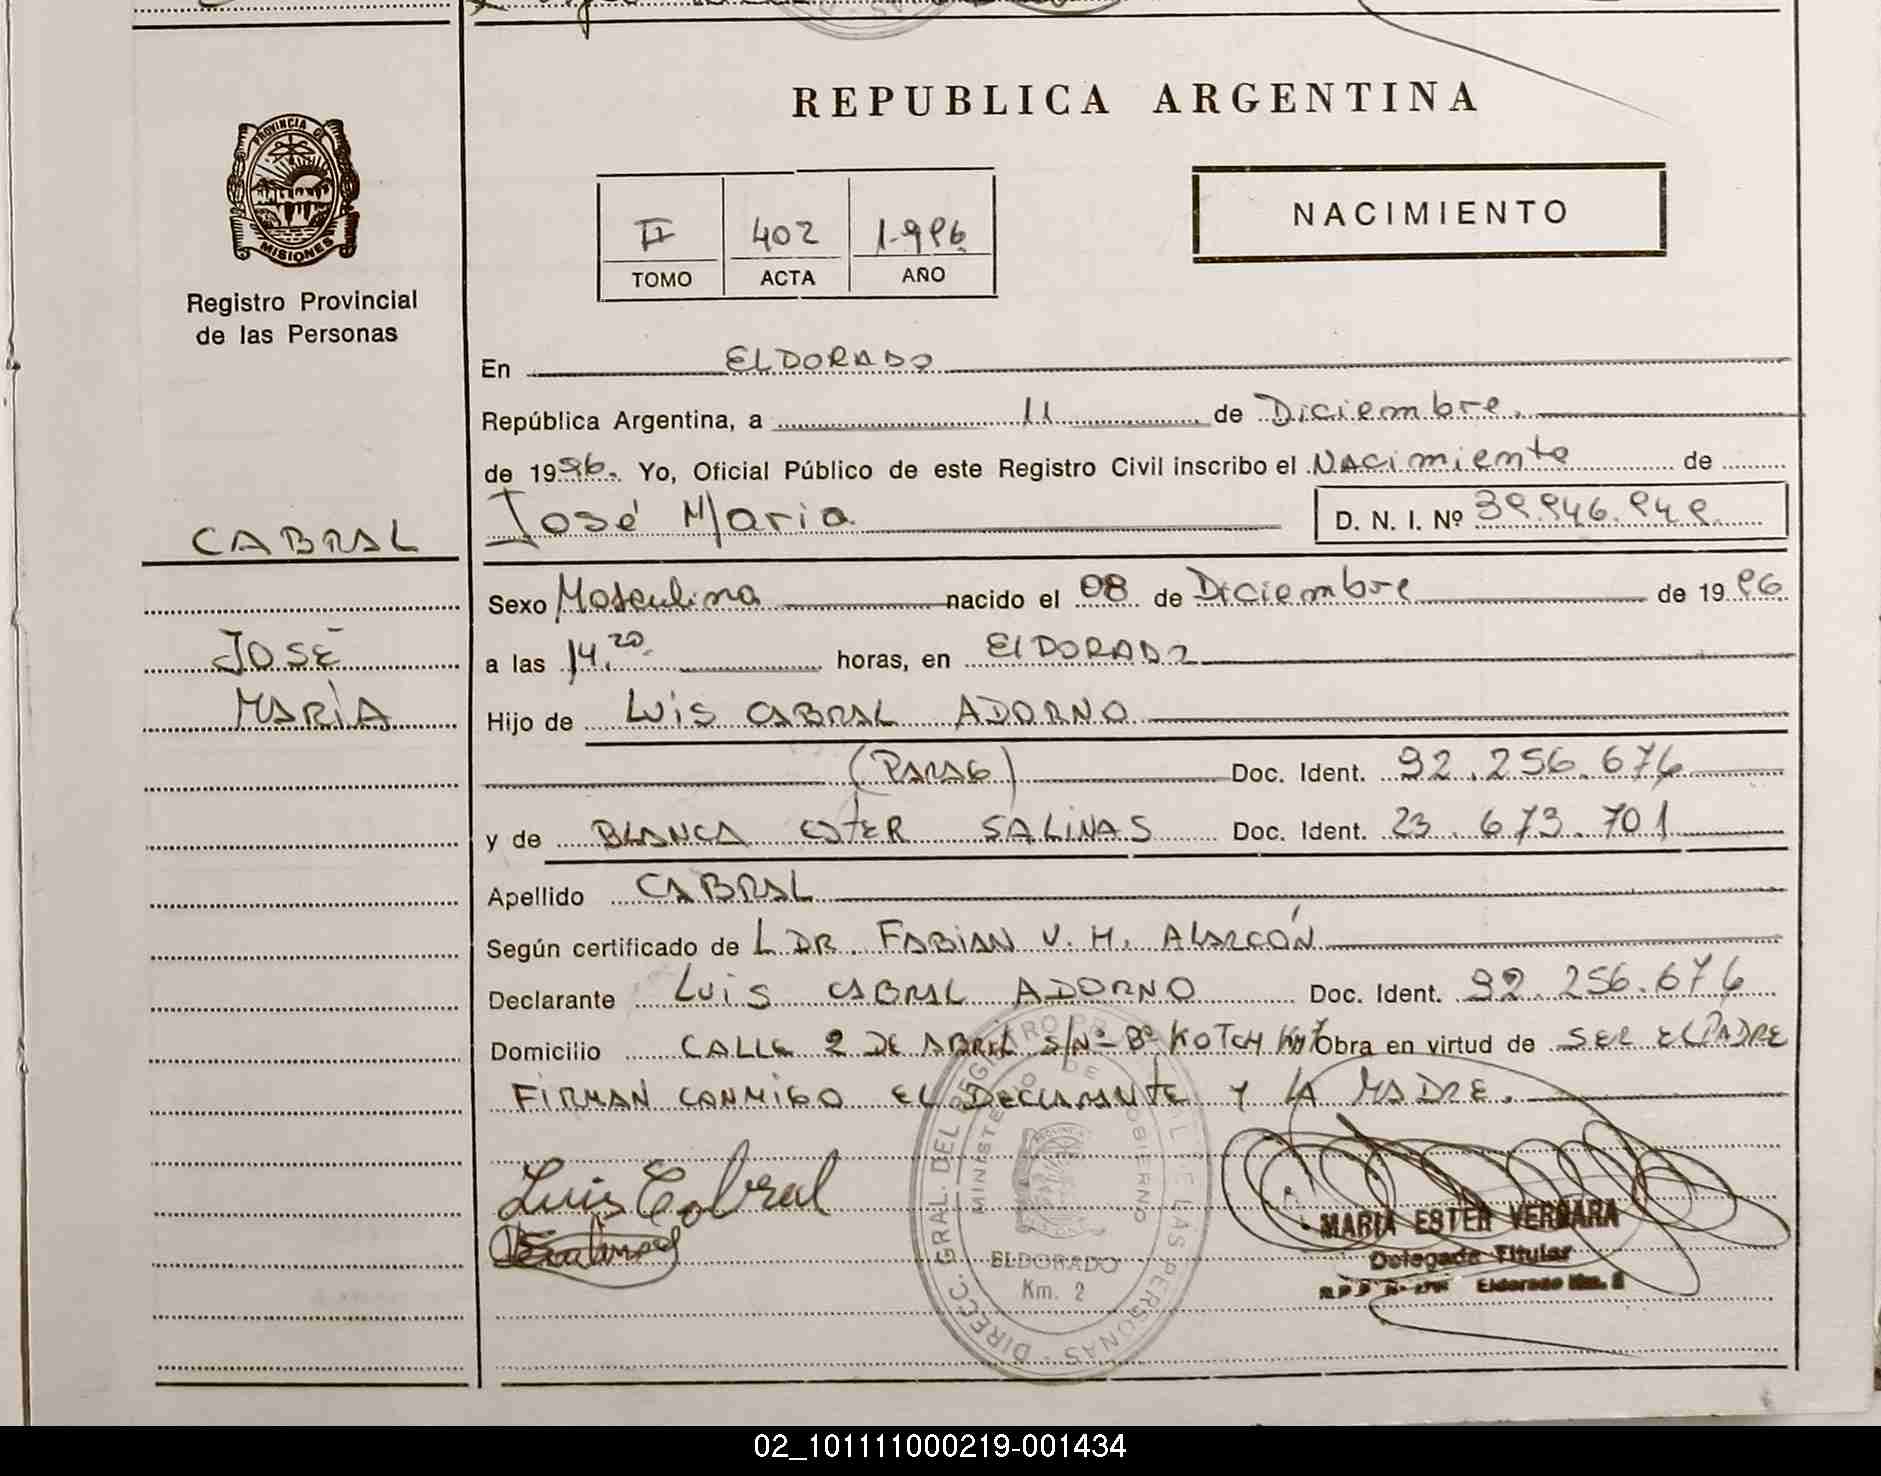 REPUBLICA ARGENTINA
PROVINCIA DE
MISIONES
Registro Provincial
de las Personas
II 402 1.996
TOMO ACTA AÑO
NACIMIENTO
En ELDORADO
República Argentina, a 11 de Diciembre.
de 1996. Yo, Oficial Público de este Registro Civil inscribo el Nacimiento de
José Maria D. N. I. Nº 39.946.949
CABRAL
JOSÉ
MARÍA
Sexo Masculino nacido el 08 de Diciembre de 1996
a las 14.20 horas, en ElDORADO
Hijo de LUIS CABRAL ADORNO
(PARAG) Doc. Ident. 92.256.676
y de BLANCA ESTER SALINAS Doc. Ident. 23.673.701
Apellido CABRAL
Según certificado de L DR. FABIAN V. H. ALARCÓN
Declarante LUIS CABRAL ADORNO Doc. Ident. 92.256.676
Domicilio CALLE 2 DE ABRIL S/Nº- Bº KOTCH Obra en virtud de SER EL PADRE
FIRMAN CONMIGO EL DECLARANTE Y LA MADRE.
Luis Cabral
DIRECC. GRAL. DEL REGISTRO PROVINCIAL DE LAS PERSONAS
MINISTERIO DE GOBIERNO
ELDORADO
Km. 2
MARIA ESTER VERGARA
Delegada Titular
Eldorado Km. 2
02_101111000219-001434